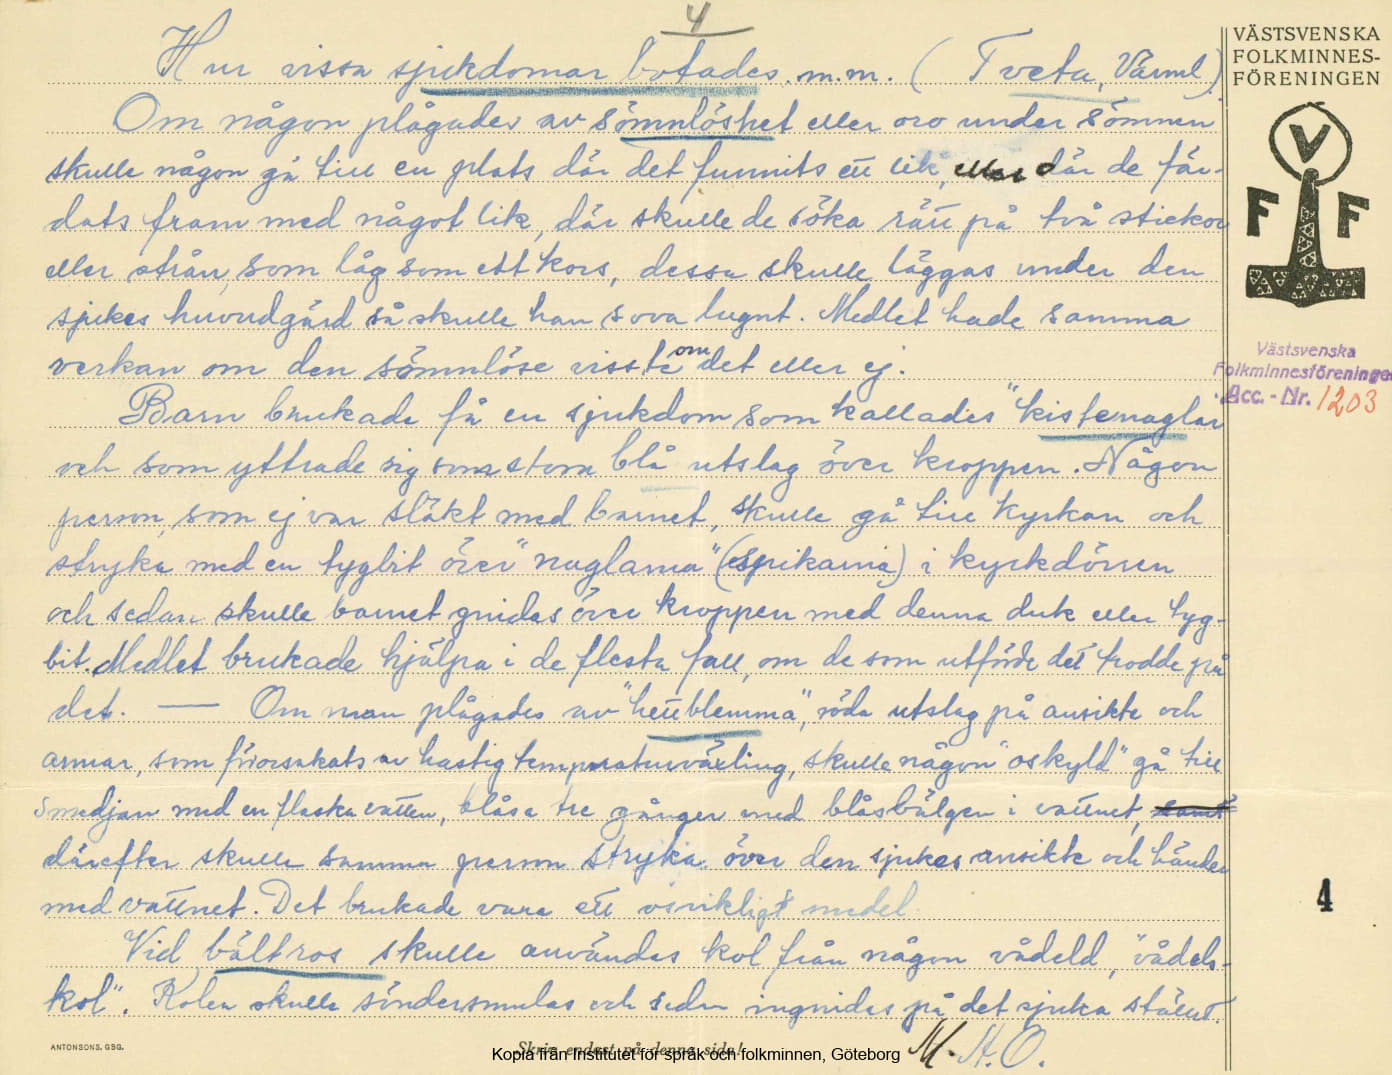 4
Hur vissa sjukdomar botades m.m. (Tveta, Värml)
Om någon plågades av sömnlöshet eller oro under sömnen
skulle någon gå till en plats där det funnits ett lik, eller där de fär-
dats fram med något lik, där skulle de söka rätt på två stickor
eller strån, som låg som ett kors, dessa skulle läggas under den
sjukes huvudgärd så skulle han sova lugnt. Medlet hade samma
verkan om den sömnlöse visste om det eller ej.
Barn brukade få en sjukdom som kallades "kistenaglar
och som yttrade sig som stora blå utslag över kroppen. Någon
person, som ej var släkt med barnet, skulle gå till kyrkan och
stryka med en tygbit över "naglarna" (spikarna) i kyrkdörren
och sedan skulle barnet gnidas över kroppen med denna duk eller tyg-
bit. Medlet brukade hjälpa i de flesta fall, om de som utförde det trodde på
det. — Om man plågades av "hettblemma", röda utslag på ansikte och
armar, som förorsakats av hastig temperaturväxling, skulle någon "oskyld" gå till
smedjan med en flaska vatten, blåsa tre gånger med blåsbälgen i vattnet, samt
därefter skulle samma person stryka över den sjukes ansikte och händer
med vattnet. Det brukade vara ett osvikligt medel.
Vid bältros skulle användas kol från någon vådeld, "vådels-
kol". Kolen skulle söndersmulas och sedan ingnidas på det sjuka stället.
M. H. O.
VÄSTSVENSKA
FOLKMINNES-
FÖRENINGEN
V
F F
Västsvenska
Folkminnesföreningen
Acc.-Nr. 1203
4
ANTONSONS, GBG.
Skriv endast på denna sida!
Kopia från Institutet för språk och folkminnen, Göteborg